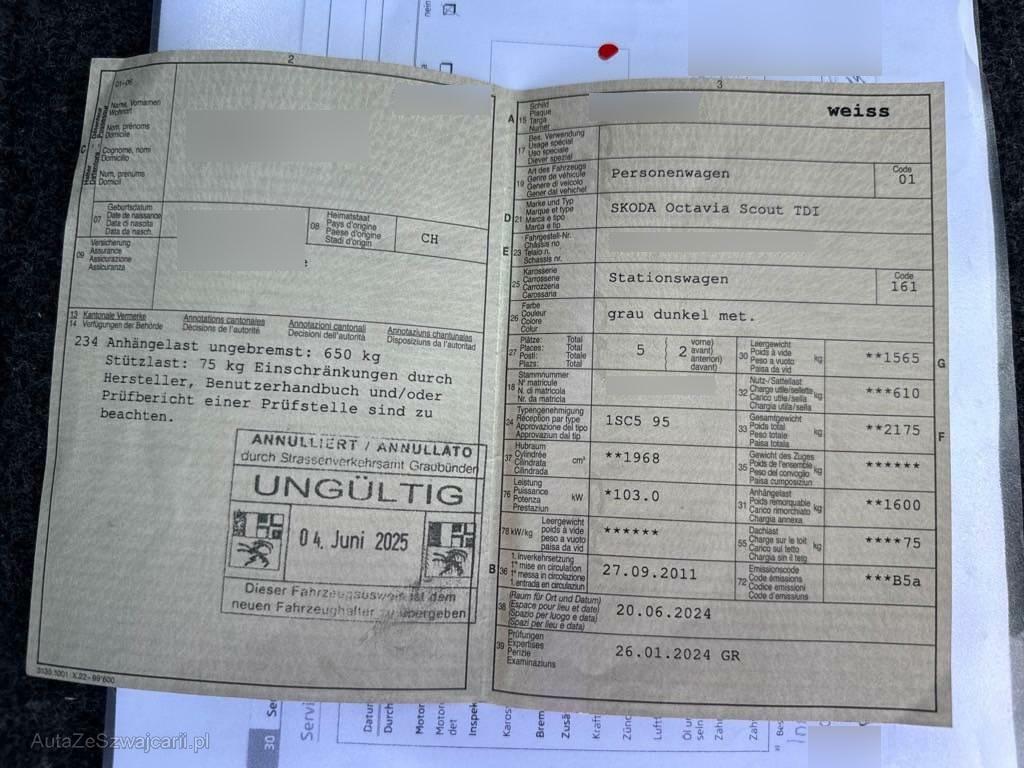 nein
2
01-06
Name, Vornamen
Wohnort
Nom, prénoms
Domicile
C
Cognome, nomi
Domicilio
Num, prenums
Domicil
07
Geburtsdatum
Date de naissance
Data di nascita
Data da nasch.
08
Heimatstaat
Pays d'origine
Paese d'origine
Stadi d'origin
CH
09
Versicherung
Assurance
Assicurazione
Assicuranza
13 Kantonale Vermerke
14 Verfügungen der Behörde
Annotations cantonales
Décisions de l'autorité
Annotazioni cantonali
Decisioni dell'autorità
Annotaziuns chantunalas
Disposiziuns da l'autoritad
234 Anhängelast ungebremst: 650 kg
Stützlast: 75 kg Einschränkungen durch
Hersteller, Benutzerhandbuch und/oder
Prüfbericht einer Prüfstelle sind zu
beachten.
ANNULLIERT / ANNULLATO
durch Strassenverkehrsamt Graubünden
UNGÜLTIG
04. Juni 2025
Dieser Fahrzeugausweis ist dem
neuen Fahrzeughalter zu übergeben
3
A 15
Schild
Plaque
Targa
Numer
weiss
17
Bes. Verwendung
Usage spécial
Uso speciale
Diever spezial
19
Art des Fahrzeugs
Genre de véhicule
Genere di veicolo
Gener dal vehichel
Personenwagen
Code
01
D 21
Marke und Typ
Marque et type
Marca e tipo
Marca e tip
SKODA Octavia Scout TDI
E 23
Fahrgestell-Nr.
Châssis no
Telaio n.
Schassis nr.
25
Karosserie
Carrosserie
Carrozzeria
Carossaria
Stationswagen
Code
161
26
Farbe
Couleur
Colore
Colur
grau dunkel met.
27
Plätze: Total
Places: Total
Posti: Totale
Plazs: Total
5
2
vorne)
avant)
anteriori)
davant)
30
Leergewicht
Poids à vide
Peso a vuoto
Paisa da vid
kg
**1565
G
18
Stammnummer
N° matricule
N. di matricola
Nr. da matricla
32
Nutz-/Sattellast
Charge utile/sellette
Carico utile/sella
Chargia utila/sella
kg
***610
24
Typengenehmigung
Réception par type
Approvazione del tipo
Approvaziun dal tip
1SC5 95
33
Gesamtgewicht
Poids total
Peso totale
Paisa totala
kg
**2175
F
37
Hubraum
Cylindrée
Cilindrata
Cilindrada
cm³
**1968
35
Gewicht des Zuges
Poids de l'ensemble
Peso del convoglio
Paisa cumposiziun
kg
******
76
Leistung
Puissance
Potenza
Prestaziun
kW
*103.0
31
Anhängelast
Poids remorquable
Carico rimorchiato
Chargia annexa
kg
**1600
78 kW/kg
Leergewicht
poids à vide
peso a vuoto
paisa da vid
******
55
Dachlast
Charge sur le toit
Carico sul tetto
Chargia sin il tetg
kg
****75
B 36
1. Inverkehrsetzung
1re mise en circulation
1a messa in circolazione
1. entrada en circulaziun
27.09.2011
72
Emissionscode
Code émissions
Codice emissioni
Code d'emissiuns
***B5a
38
(Raum für Ort und Datum)
(Espace pour lieu et date)
(Spazio per luogo e data)
(Spazi per lieu e data)
20.06.2024
39
Prüfungen
Expertises
Perizie
Examinaziuns
26.01.2024 GR
30
Servi
Datum
Durch
Motor
Motor
det
Inspek
Karos
Brem
Zusä
Kraft
Zünd
Luft
Öl u
sein
Zah
Zah
AutaZeSzwajcarii.pl